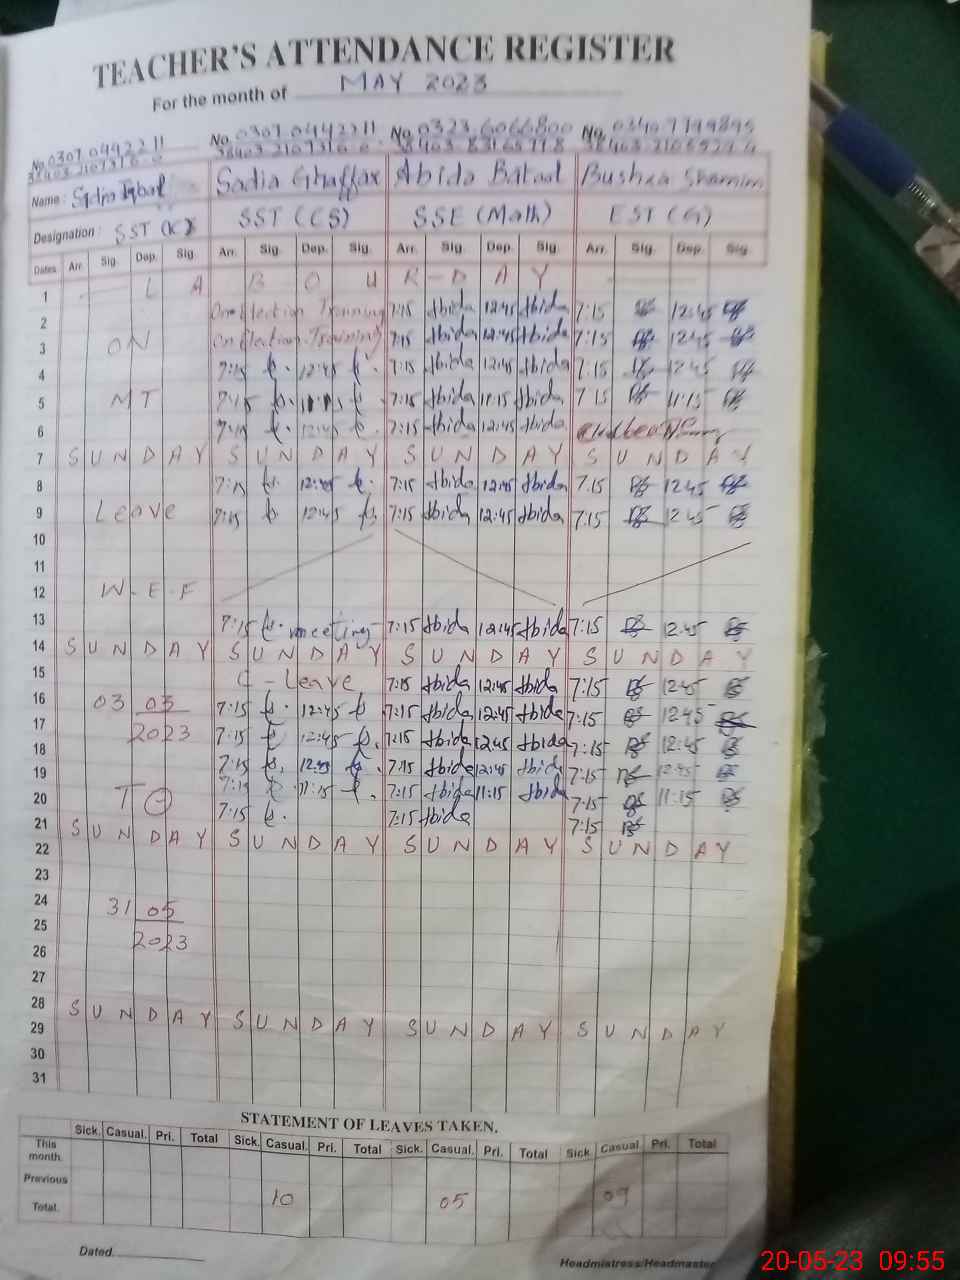 TEACHER'S ATTENDANCE REGISTER
For the month of MAY 2023
No. 0307 0442211 No. 0307 0442211 No. 0323 6066800 No. 0340
Name : Sadia Iqbal Sadia Ghaffar Abida Batool Bushra Shamim
Designation : SST SST (CS) SSE (Math) EST (G)
Dates Arr. Sig. Dep. Sig. Arr. Sig. Dep. Sig. Arr. Sig. Dep. Sig. Arr. Sig. Dep. Sig.
1 L A B O U R - D A Y
2 On Election Training 7:15 Abida 12:45 Abida 7:15 12:45
3 ON On Election Training 7:15 Abida 12:45 Abida 7:15 12:45
4 7:15 12:45 7:15 Abida 12:45 Abida 7:15 12:45
5 MT 7:15 11:15 7:15 Abida 11:15 Abida 7 15 11:15
6 7:15 12:45 7:15 Abida 12:45 Abida
7 S U N D A Y S U N D A Y S U N D A Y S U N D A Y
8 7:15 12:45 7:15 Abida 12:45 Abida 7.15 12:45
9 Leave 7:15 12:45 7:15 Abida 12:45 Abida 7:15 12:45
10
11
12 W - E - F
13 7:15 meeting 7:15 Abida 12:45 Abida 7:15 12:45
14 S U N D A Y S U N D A Y S U N D A Y S U N D A Y
15 C - Leave 7:15 Abida 12:45 Abida 7:15 12:45
16 03 03 7:15 12:45 7:15 Abida 12:45 Abida 7:15 12:45
17 2023 7:15 12:45 7:15 Abida 12:45 Abida 7:15 12:45
18 7:15 12:45 7:15 Abida 12:45 Abida 7:15 12:45
19 7:15 11:15 7:15 Abida 11:15 Abida 7:15 11:15
20 TO 7:15 7:15 Abida 7:15
21 S U N D A Y S U N D A Y S U N D A Y S U N D A Y
22
23
24 31 05
25 2023
26
27
28 S U N D A Y S U N D A Y S U N D A Y S U N D A Y
29
30
31
STATEMENT OF LEAVES TAKEN.
Sick. Casual. Pri. Total Sick. Casual. Pri. Total Sick. Casual. Pri. Total Sick. Casual. Pri. Total
This month.
Previous
Total. 10 05 09
Dated. Headmistress/Headmaster
20-05-23 09:55